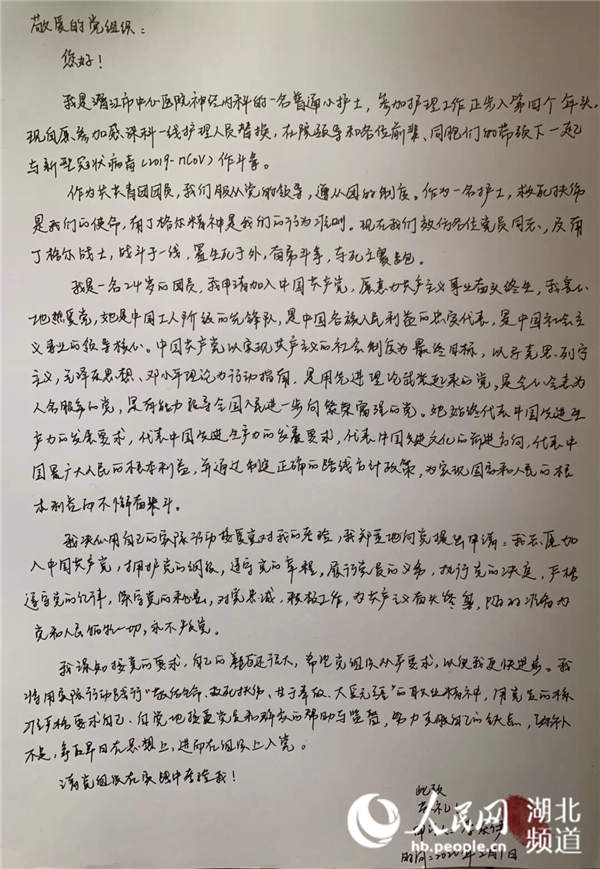 敬爱的党组织：
您好！
我是潜江市中心医院神经内科的一名普通小护士，参加护理工作正步入第四个年头，
现自愿参加感染科一线护理人员替换，在院领导和各位前辈、同胞们的带领下一起
与新型冠状病毒(2019-nCoV)作斗争。
作为共青团团员，我们服从党的领导，遵从团的制度。作为一名护士，救死扶伤
是我们的使命，南丁格尔精神是我们的行为准则。现在我们效仿各位党员同志，及南
丁格尔战士，战斗于一线，置生死于外，奋节斗争，
我是一名24岁的团员，我申请加入中国共产党，愿意为共产主义事业奋斗终生，我衷心
地热爱党，她是中国工人阶级的先锋队，是中国各族人民利益的忠实代表，是中国社会主
义事业的领导核心。中国共产党以实现共产主义的社会制度为最终目标，以马克思、列宁
主义，毛泽东思想、邓小平理论为行动指南，是用先进理论武装起来的党，是全心全意为
人民服务的党，是有能力领导全国人民进一步向繁荣富强的党。她始终代表中国先进生
产力的发展要求，代表中国先进生产力的发展要求，代表中国先进文化的前进方向，代表中
国最广大人民的根本利益，并通过制定正确的路线方针政策，为实现国家和人民的根
本利益而不懈奋斗。
我决心用自己的实际行动接受党对我的考验，我郑重地向党提出申请：我志愿加
入中国共产党，拥护党的纲领，遵守党的章程，履行党员的义务，执行党的决定，严格
遵守党的纪律，保守党的秘密，对党忠诚，积极工作，为共产主义奋斗终身，随时准备为
党和人民牺牲一切，永不叛党。
我深知按党的要求，自己的差距还很大，希望党组织从严要求，以使我更快进步。我
将用实际行动践行“敬佑生命、救死扶伤、甘于奉献、大爱无疆”的职业精神，用党员的标
准严格要求自己，自觉地接受党员和群众的帮助与监督，努力克服自己的缺点，弥补
不足，争取早日在思想上，进而在组织上入党。
请党组织在实践中考验我！
此致
敬礼！
时间：2020年2月1日
人民网 湖北频道
hb.people.cn